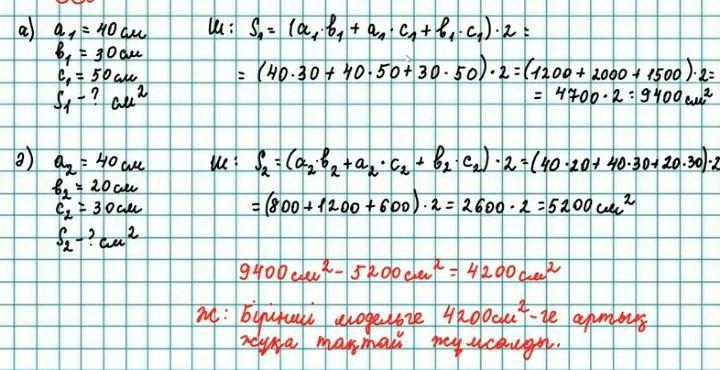 а) a₁ = 40 см
b₁ = 30 см
c₁ = 50 см
S₁ - ? см²
Ш: S₁ = (a₁·b₁ + a₁·c₁ + b₁·c₁)·2 =
= (40·30 + 40·50 + 30·50)·2 = (1200 + 2000 + 1500)·2 =
= 4700·2 = 9400 см²
ә) a₂ = 40 см
b₂ = 20 см
c₂ = 30 см
S₂ - ? см²
Ш: S₂ = (a₂·b₂ + a₂·c₂ + b₂·c₂)·2 = (40·20 + 40·30 + 20·30)·2
= (800 + 1200 + 600)·2 = 2600·2 = 5200 см²
9400 см² - 5200 см² = 4200 см²
Ж: Бірінші модельге 4200 см²-ге артық
жұқа тақтай жұмсалды.